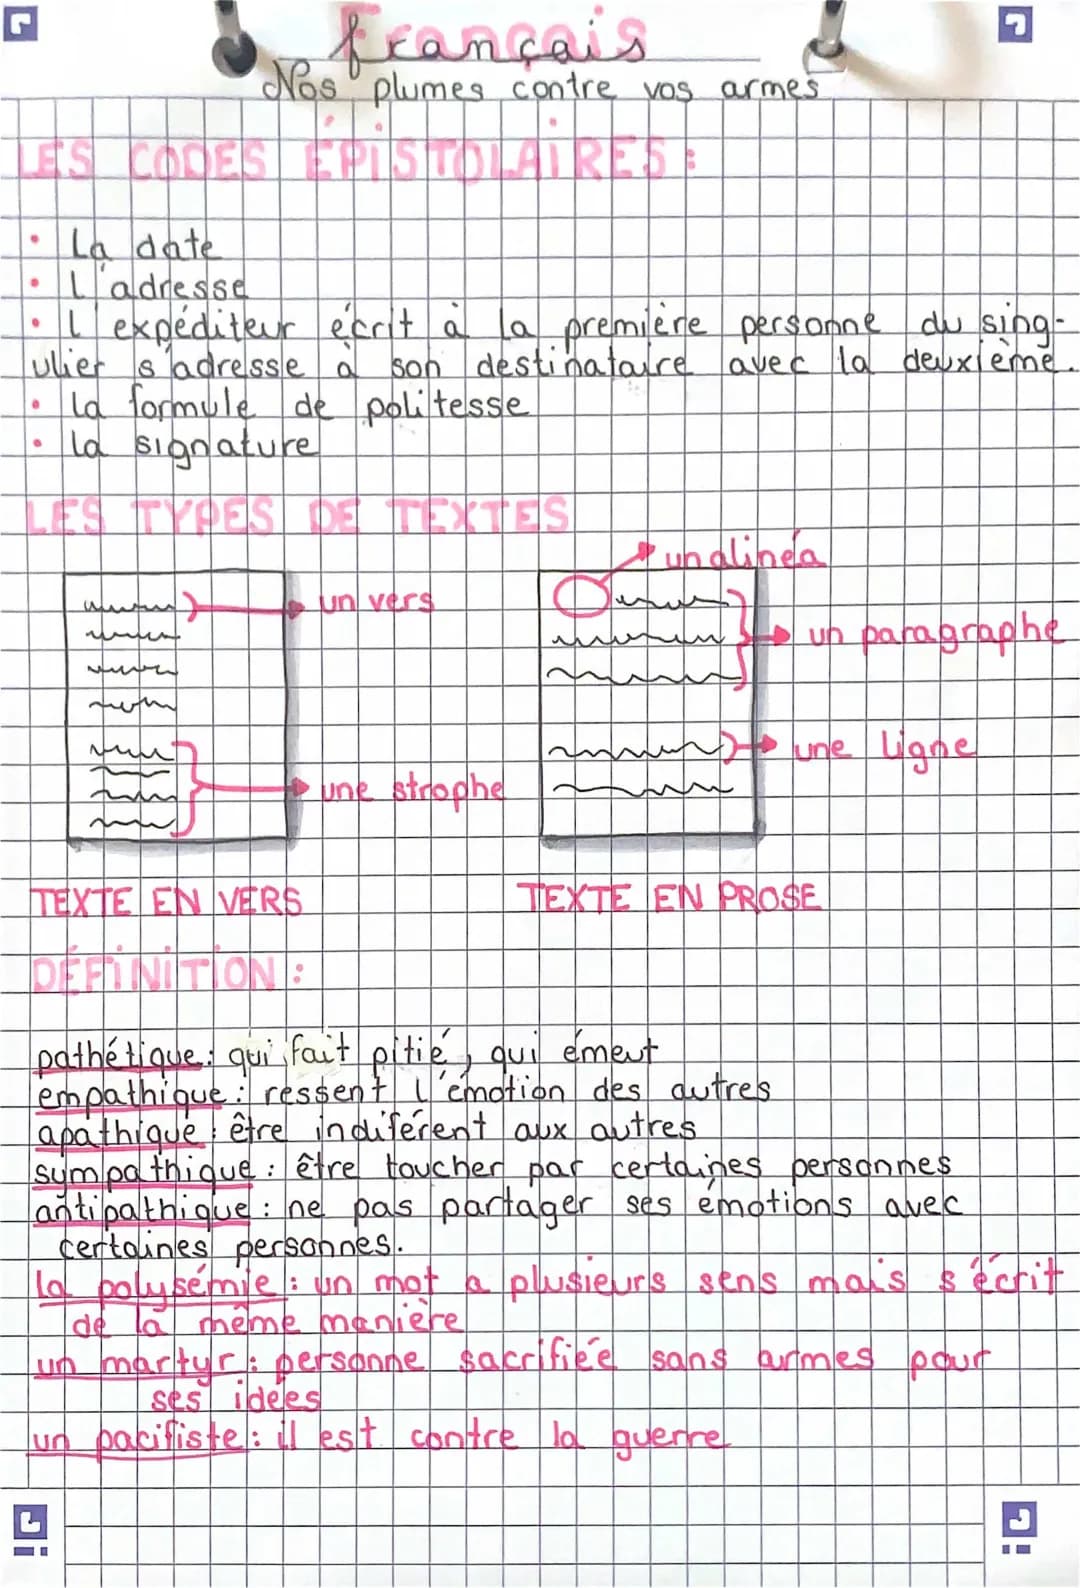 Français
Nos plumes contre vos armes
LES CODES ÉPISTOLAIRES :
• La date
• l'adresse
• l'expéditeur écrit à la première personne du sing-
ulier s'adresse à son destinataire avec la deuxième.
• la formule de politesse
• la signature
LES TYPES DE TEXTES
un alinéa
un vers
un paragraphe
une ligne
une strophe
TEXTE EN VERS
TEXTE EN PROSE
DÉFINITION :
pathétique : qui fait pitié, qui émeut
empathique : ressent l'émotion des autres
apathique : être indiférent aux autres
sympathique : être toucher par certaines personnes
antipathique : ne pas partager ses émotions avec
certaines personnes.
la polysémie : un mot a plusieurs sens mais s'écrit
de la même manière
un martyr : personne sacrifiée sans armes pour
ses idées
un pacifiste : il est contre la guerre